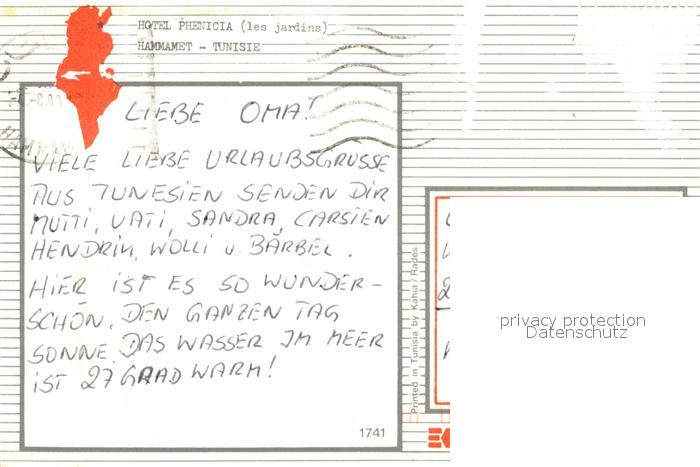 HOTEL PHENICIA (les jardins)
HAMMAMET - TUNISIE
LIEBE OMA!
VIELE LIEBE URLAUBSGRÜSSE
AUS TUNESIEN SENDEN DIR
MUTTI, VATI, SANDRA, CARSTEN
HENDRIK, WOLLI u. BÄRBEL.
HIER IST ES SO WUNDER-
SCHÖN. DEN GANZEN TAG
SONNE. DAS WASSER IM MEER
IST 27 GRAD WARM!
1741
Printed in Tunisia by Kahia / Rades
privacy protection
Datenschutz